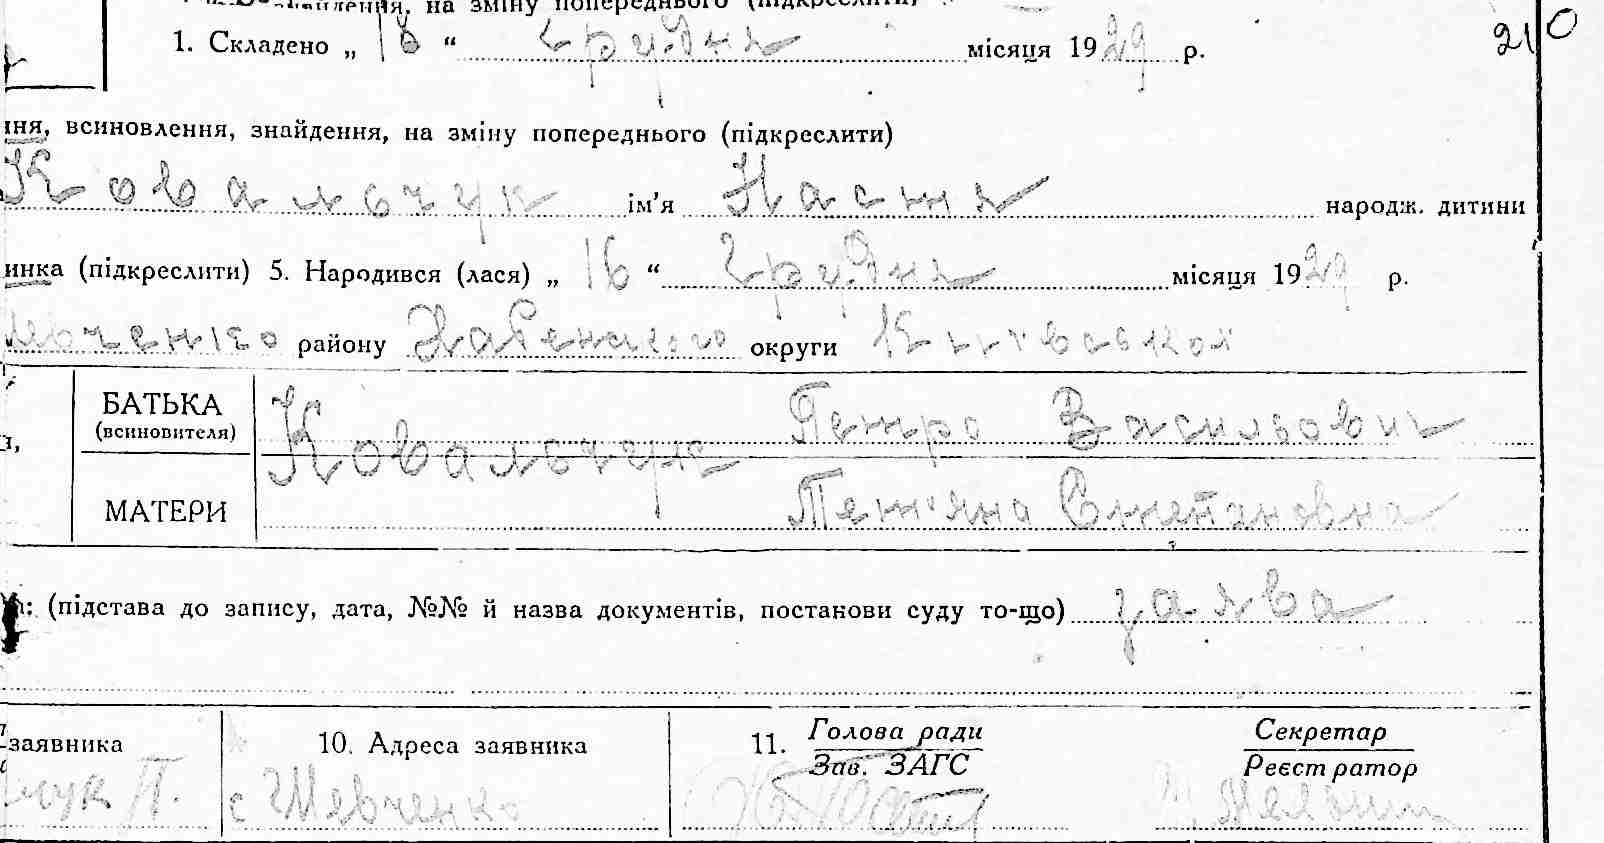 на зміну попереднього (підкреслити)
1. Складено „ 16 “ грудня місяця 1929 р.
210
ння, всиновлення, знайдення, на зміну попереднього (підкреслити)
Ковальчук ім’я Настя народж. дитини
инка (підкреслити) 5. Народився (лася) „ 16 “ грудня місяця 1929 р.
вченко району Хабенського округи Київської
БАТЬКА Ковальчук Петро Васильович
(всиновителя)
МАТЕРИ Тетяна Степановна
(підстава до запису, дата, №№ й назва документів, постанови суду то-що) заява
заявника 10. Адреса заявника 11. Голова ради Секретар
Зав. ЗАГС Реєстратор
чук П. с Шевченко